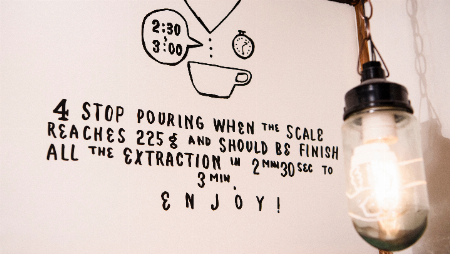 2:30
3:00
4 STOP POURING WHEN THE SCALE
REACHES 225g AND SHOULD BE FINISH
ALL THE EXTRACTION IN 2MIN30SEC TO
3MIN.
ENJOY!